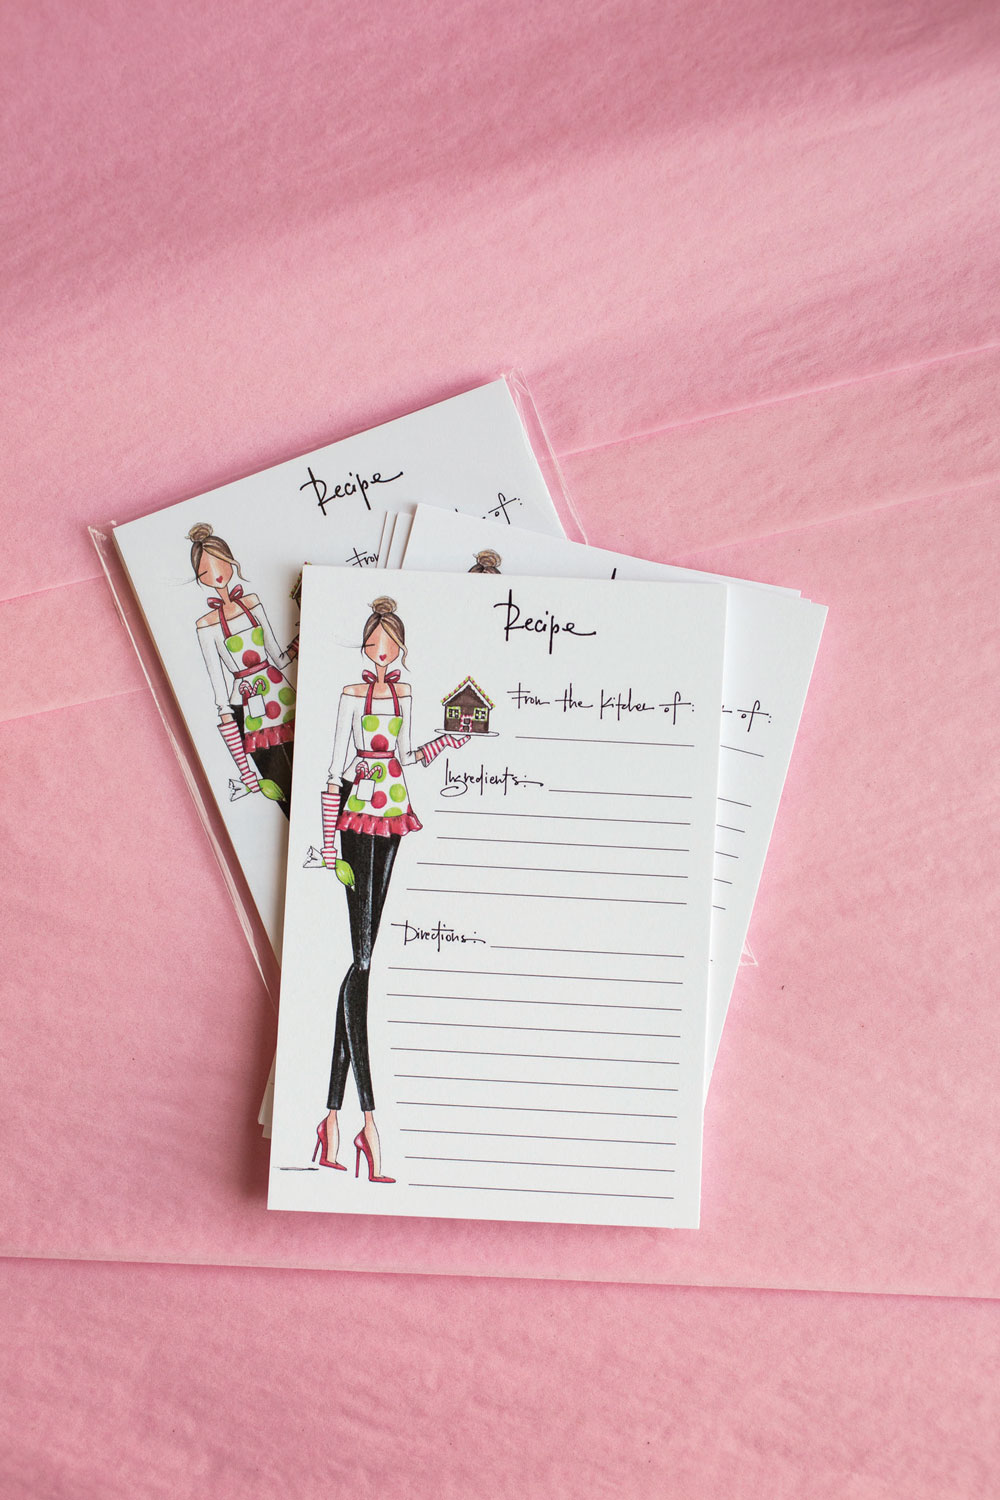 Recipe
of:
From
Recipe
From the Kitchen of:
of:
Ingredients:
Directions: